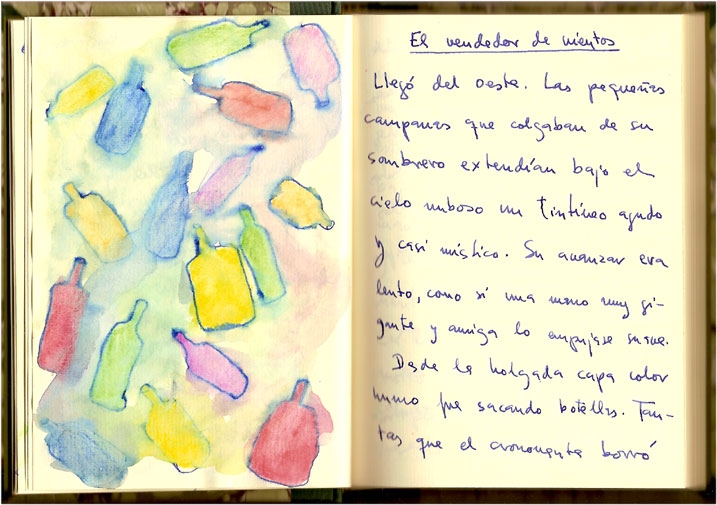 El vendedor de vientos
Llegó del oeste. Las pequeñas
campanas que colgaban de su
sombrero extendían bajo el
cielo nuboso un tintineo agudo
y casi místico. Su avanzar era
lento, como si una mano muy gi-
gante y amiga lo empujase suave.
Desde la holgada capa color
humo fue sacando botellas. Tan-
tas que el cronomenta borró